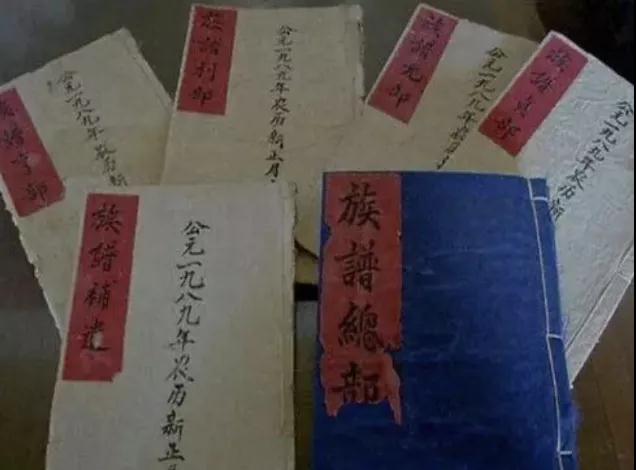 族譜亨部
公元一九八九年农历新
族譜利部
公元一九八九年农历新正月
族譜元部
公元一九八九年
族譜貞部
公元一九八九年农历新
族譜補遺
公元一九八九年农历新正月
族譜總部